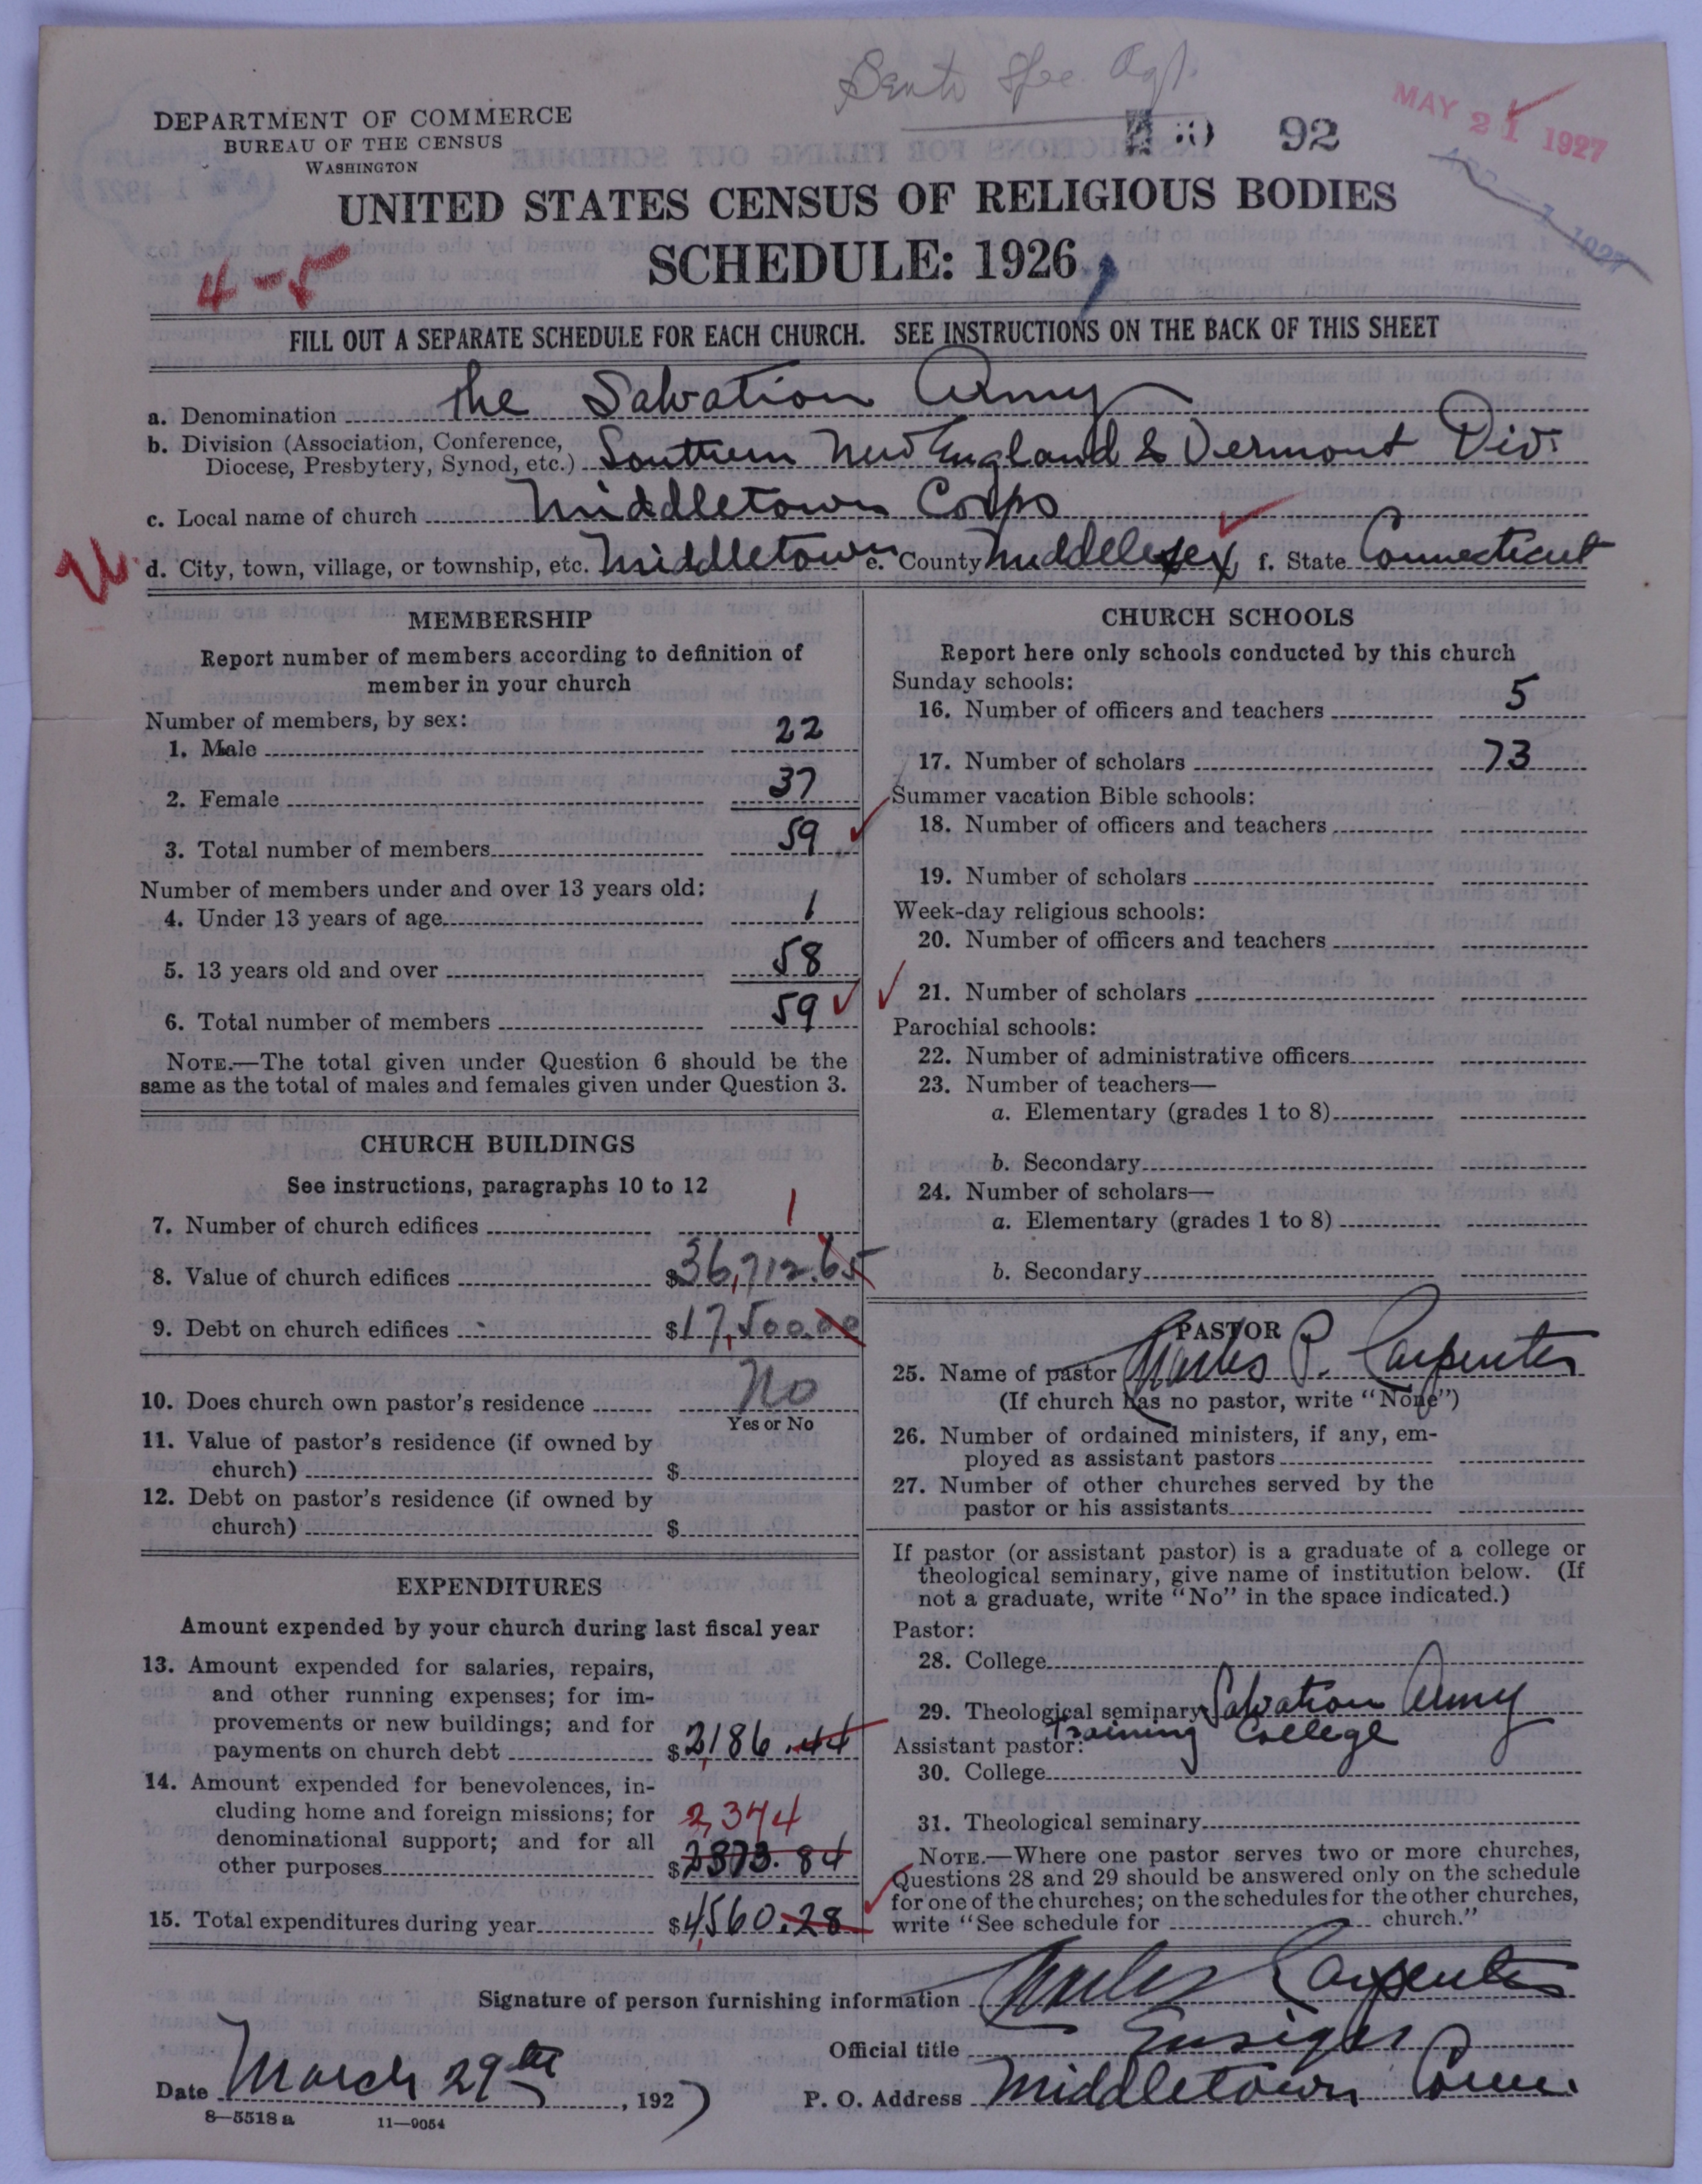 DEPARTMENT OF COMMERCE
BUREAU OF THE CENSUS
WASHINGTON
92
MAY 21 1927
UNITED STATES CENSUS OF RELIGIOUS BODIES
SCHEDULE: 1926
4-5
FILL OUT A SEPARATE SCHEDULE FOR EACH CHURCH. SEE INSTRUCTIONS ON THE BACK OF THIS SHEET
a. Denomination The Salvation Army
b. Division (Association, Conference,
Diocese, Presbytery, Synod, etc.) Southern New England & Vermont Div.
c. Local name of church Middletown Corps
d. City, town, village, or township, etc. Middletown e. County Middlesex f. State Connecticut
MEMBERSHIP
Report number of members according to definition of
member in your church
Number of members, by sex:
1. Male 22
2. Female 37
3. Total number of members 59
Number of members under and over 13 years old:
4. Under 13 years of age 1
5. 13 years old and over 58
6. Total number of members 59
NOTE.—The total given under Question 6 should be the
same as the total of males and females given under Question 3.
CHURCH BUILDINGS
See instructions, paragraphs 10 to 12
7. Number of church edifices 1
8. Value of church edifices $36,712.65
9. Debt on church edifices $17,500.00
10. Does church own pastor's residence No
Yes or No
11. Value of pastor's residence (if owned by
church) $
12. Debt on pastor's residence (if owned by
church) $
EXPENDITURES
Amount expended by your church during last fiscal year
13. Amount expended for salaries, repairs,
and other running expenses; for im-
provements or new buildings; and for
payments on church debt $2,186.44
14. Amount expended for benevolences, in-
cluding home and foreign missions; for 2,374
denominational support; and for all
other purposes $2373.84
15. Total expenditures during year $4,560.28
CHURCH SCHOOLS
Report here only schools conducted by this church
Sunday schools:
16. Number of officers and teachers 5
17. Number of scholars 73
Summer vacation Bible schools:
18. Number of officers and teachers
19. Number of scholars
Week-day religious schools:
20. Number of officers and teachers
21. Number of scholars
Parochial schools:
22. Number of administrative officers
23. Number of teachers—
a. Elementary (grades 1 to 8)
b. Secondary
24. Number of scholars—
a. Elementary (grades 1 to 8)
b. Secondary
PASTOR
25. Name of pastor Charles P. Carpenter
(If church has no pastor, write "None")
26. Number of ordained ministers, if any, em-
ployed as assistant pastors
27. Number of other churches served by the
pastor or his assistants
If pastor (or assistant pastor) is a graduate of a college or
theological seminary, give name of institution below. (If
not a graduate, write "No" in the space indicated.)
Pastor:
28. College
29. Theological seminary Salvation Army
Training College
Assistant pastor:
30. College
31. Theological seminary
NOTE.—Where one pastor serves two or more churches,
Questions 28 and 29 should be answered only on the schedule
for one of the churches; on the schedules for the other churches,
write "See schedule for church."
Signature of person furnishing information Charles Carpenter
Official title Ensign
Date March 29th, 1927 P. O. Address Middletown Conn.
8—5518 a 11—9054